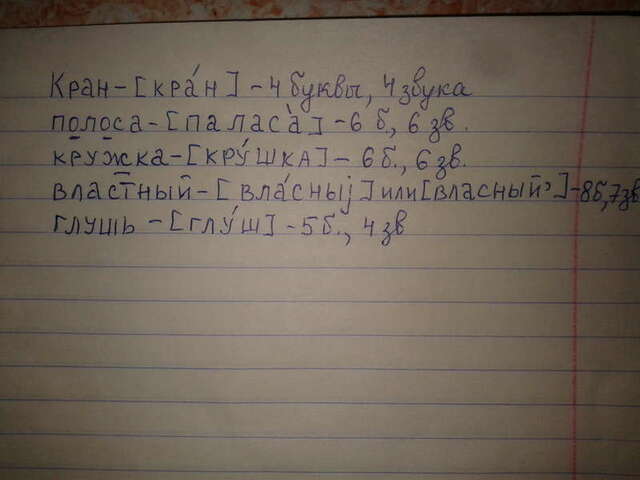 Кран-[кра́н] -4 буквы, 4 звука
полоса-[паласа̀] -6 б, 6 зв.
кружка-[кру́шка]- 6б., 6 зв.
властный-[вла́сныj] или [власный']-8б,7зв
глушь -[глу́ш] -5б., 4 зв